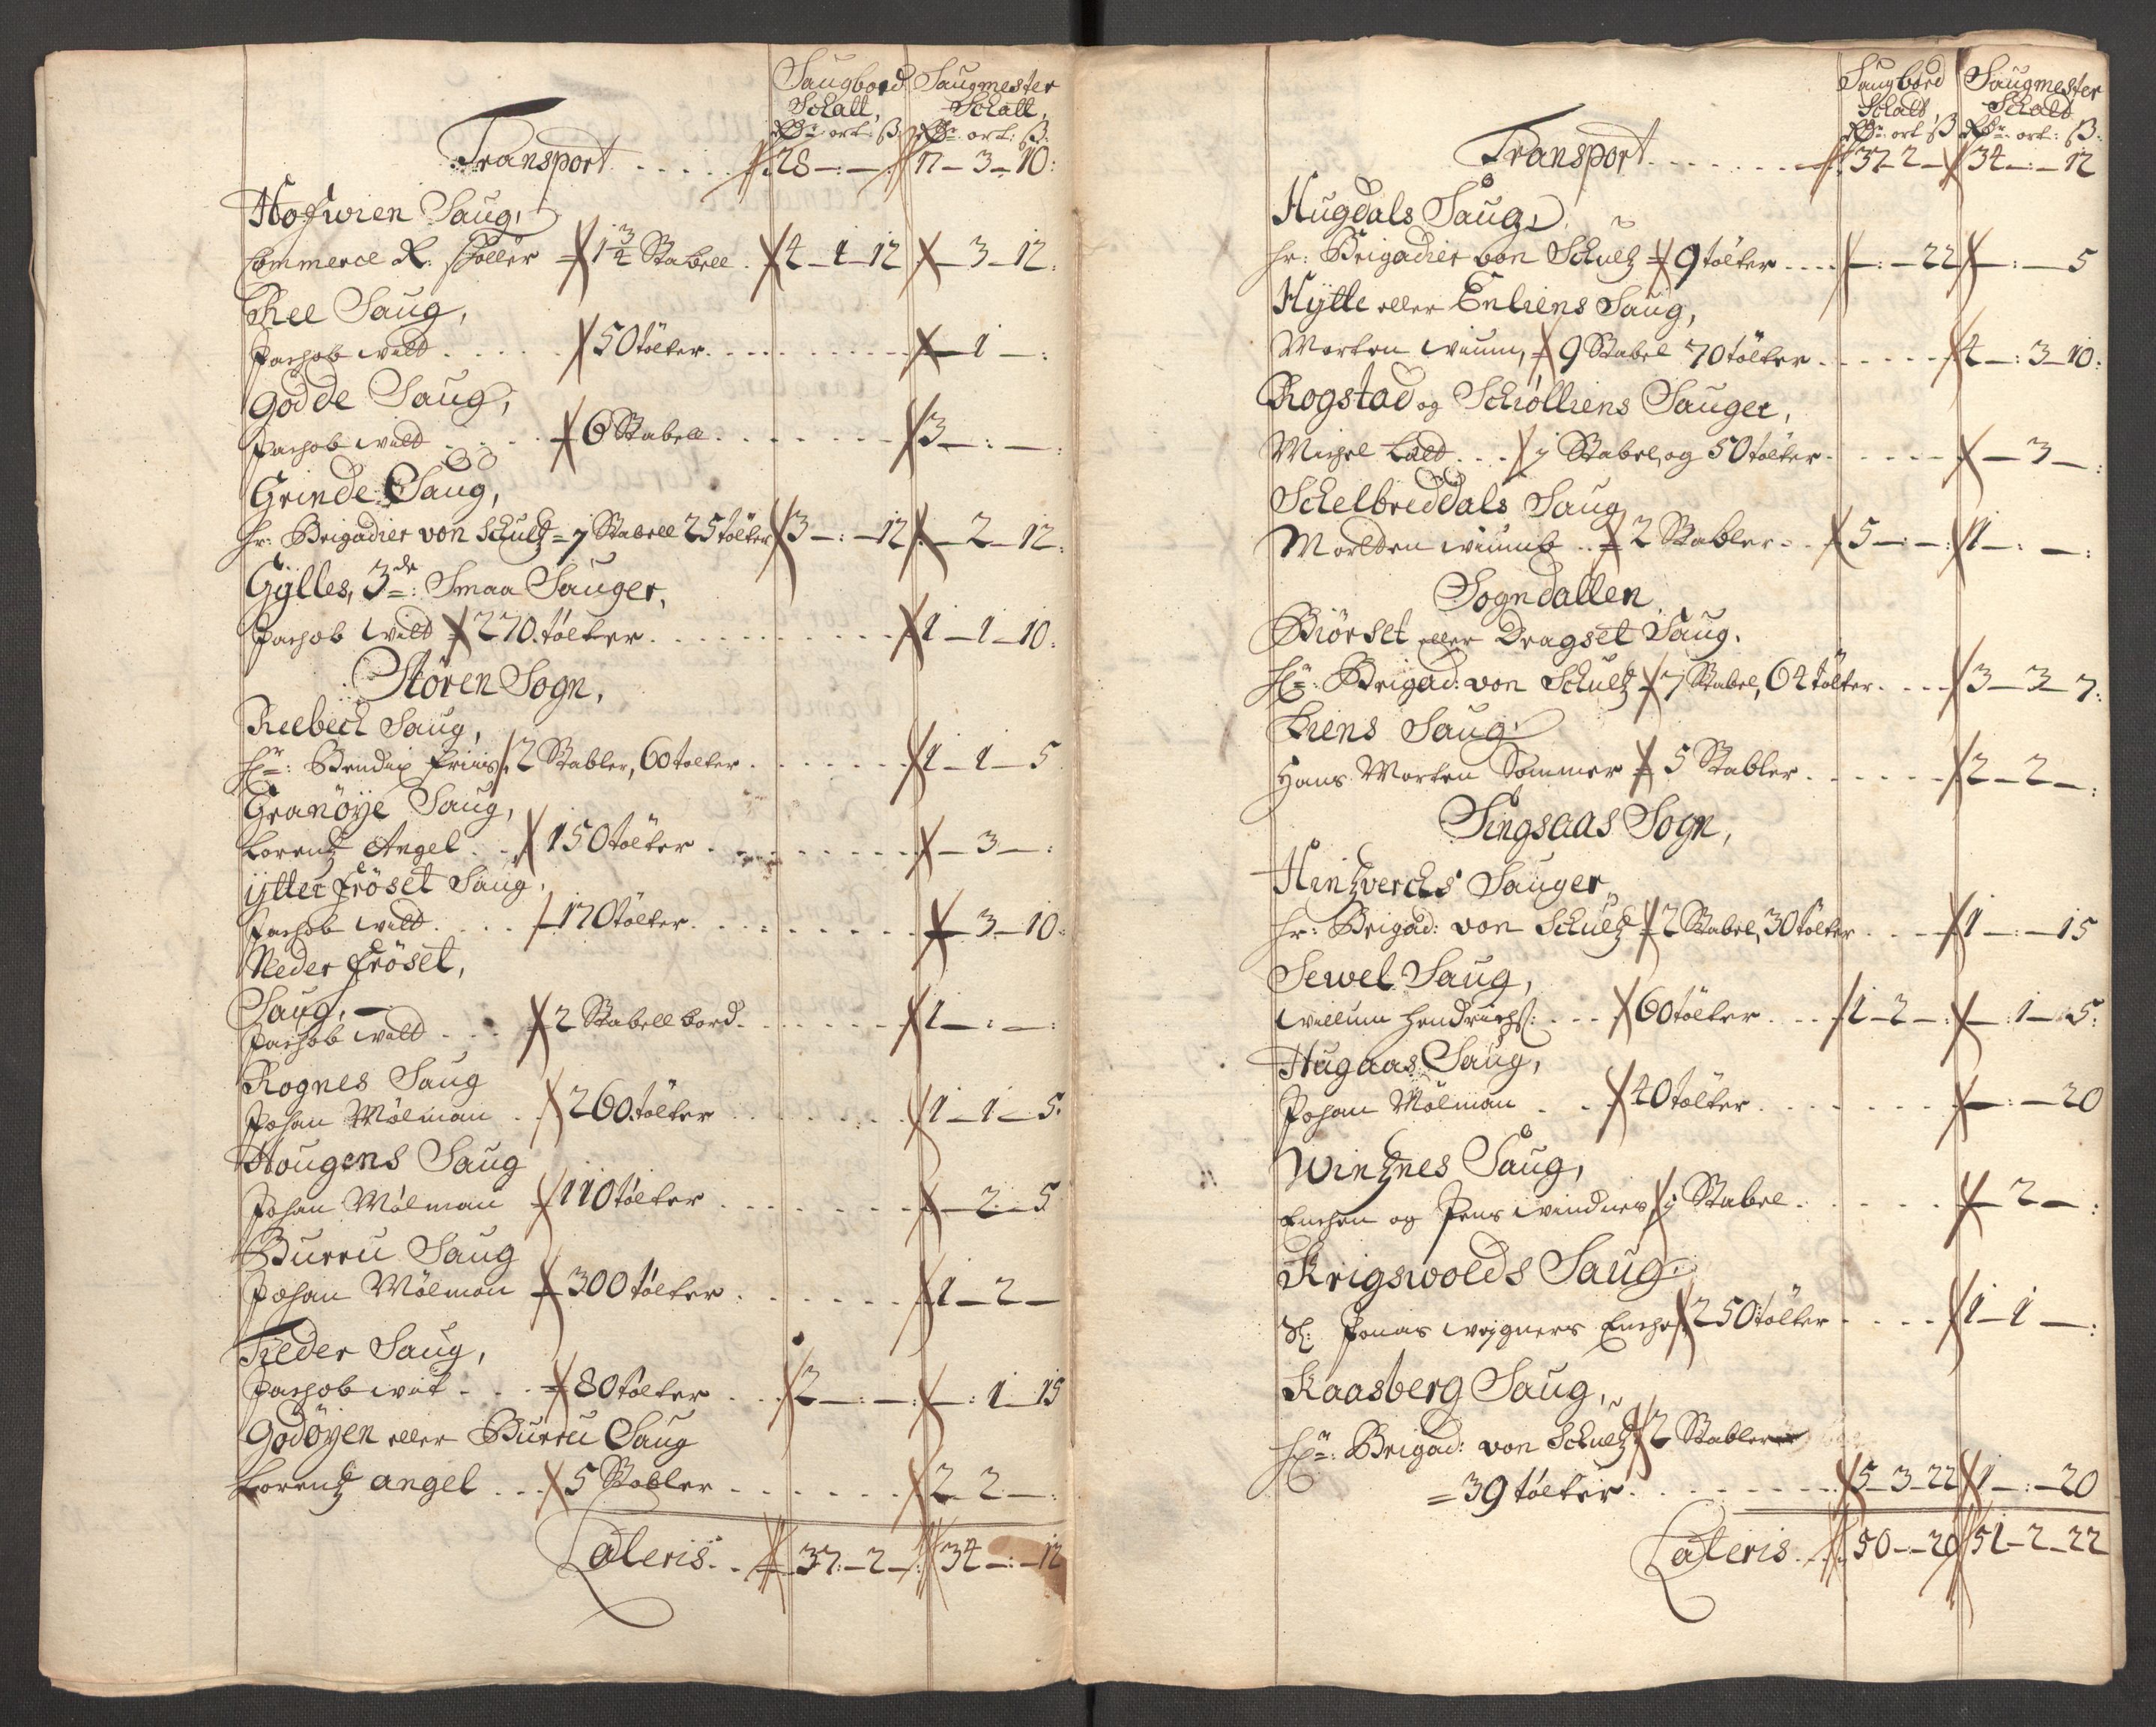 Saugbord Saugmester
Schatt, Schatt,
Rdr: ort: ß: Rdr: ort: ß:
Transport . . . . . 28 — : — 17 — 3 — 10:
Hofwien Saug,
Commerce R: Møller 1 3/4 Stabell . 4 — 1 — 12 — 3 — 12:
Ree Saug,
Jachob Wild . . . . . 50 tölter . . . . . . — 1 — :
Godde Saug,
Jachob Wild . . . . 6 Stabell . . . . . . 3 — : —
Grinde Saug,
Hr: Brigadier von Schultz = 7 Stabell 25 tölter 3 — : — 12 — 2 — 12:
Gylles, 3de: Smaa Sauger,
Jachob Wild 270. tölter . . . . . . 1 — 1 — 10:
Stören Sogn,
Reebech Saug,
Hr: Bendix Friis 2 Stabler, 60 tolter . . . . . 1 — 1 — 5
Granöye Saug,
Lorentz Angel . . 150 tölter . . . . . — 3 — :
ytter Fröset Saug,
Jachob Wild . . . . 170 tölter . . . . . — 3 — 10:
Neder Fröset,
Saug, —
Jachob Wild . . . 2 Stabell bord . . . . . 1 — : — :
Rognes Saug
Johan Mölman . . 260. tölter . . . . . 1 — 1 — 5:
Hougens Saug
Johan Mölman 110 tölter . . . . . — 2 — 5
Burru Saug
Johan Mölman 300 tölter . . . . . 1 — 2 —
Treder Saug,
Jachob Wit . . . 80 tölter . . 2 — : — — : 1 — 15
Godöyen eller Burru Saug
Lorentz Angel . . . 5 Stabler . . . . . 2 — 2 — :
Lateris . . 37: — 2 — : 34 — : — 12
Saugbord Saugmester
Schatt, Schatt
Rdr: ort ß Rdr: ort: ß:
Transport . . . . . . . 37 2 — 34 — : — 12
Hugdals Saug,
Hr: Brigadier von Schultz 9 tölter . . . . — : — 22 — : — 5
Hytte eller Enliens Saug,
Morten Wium, 9 Stabel 70 tölter . . . . . 4 — : 3 — 10:
Rogstad og Schiølliens Sauger,
Michel Kald . . . j Stabel, og 50 tölter . . . . . — 3 — :
Schelbreddals Saug
Mortten Wiumb . . 2 Stabler . . 5 — : — : 1 — : — :
Sogndallen
Biörset eller Dragset Saug.
Hr: Brigad: von Schultz 7 Stabel, 64 tölter . . . . 3 — 3 — 7:
Liens Saug,
Hans Morten Sommer 5 Stabler . . . . . 2 — 2 — :
Singsaas Sogn,
Hintzverchs Sauger,
Hr: Brigad: von Schultz 2 Stabel, 30 tölter . . . 1 — : — 15
Sewel Saug,
Willum Hendrichs: . . . 60 tölter . . . 1 — 2 — : — : 1 — 5:
Hugaas Saug,
Johan Mölman . . 40 tölter . . . . . — : — 20
Wintznes Saug,
Enchen og Jens Windnes j Stabel . . . . . — 2 — :
Krigswolds Saug,
Sl: Jonas Wegners Enche 250 tölter . . . . 1 — 1 — :
Kaasberg Saug,
Hr: Brigad: von Schultz 2 Stabler
= 39 tölter . . . . . 5 — 3 — 22 1 — : — 20
Lateris . . . 50 — : — 20 51 — 2 — 22